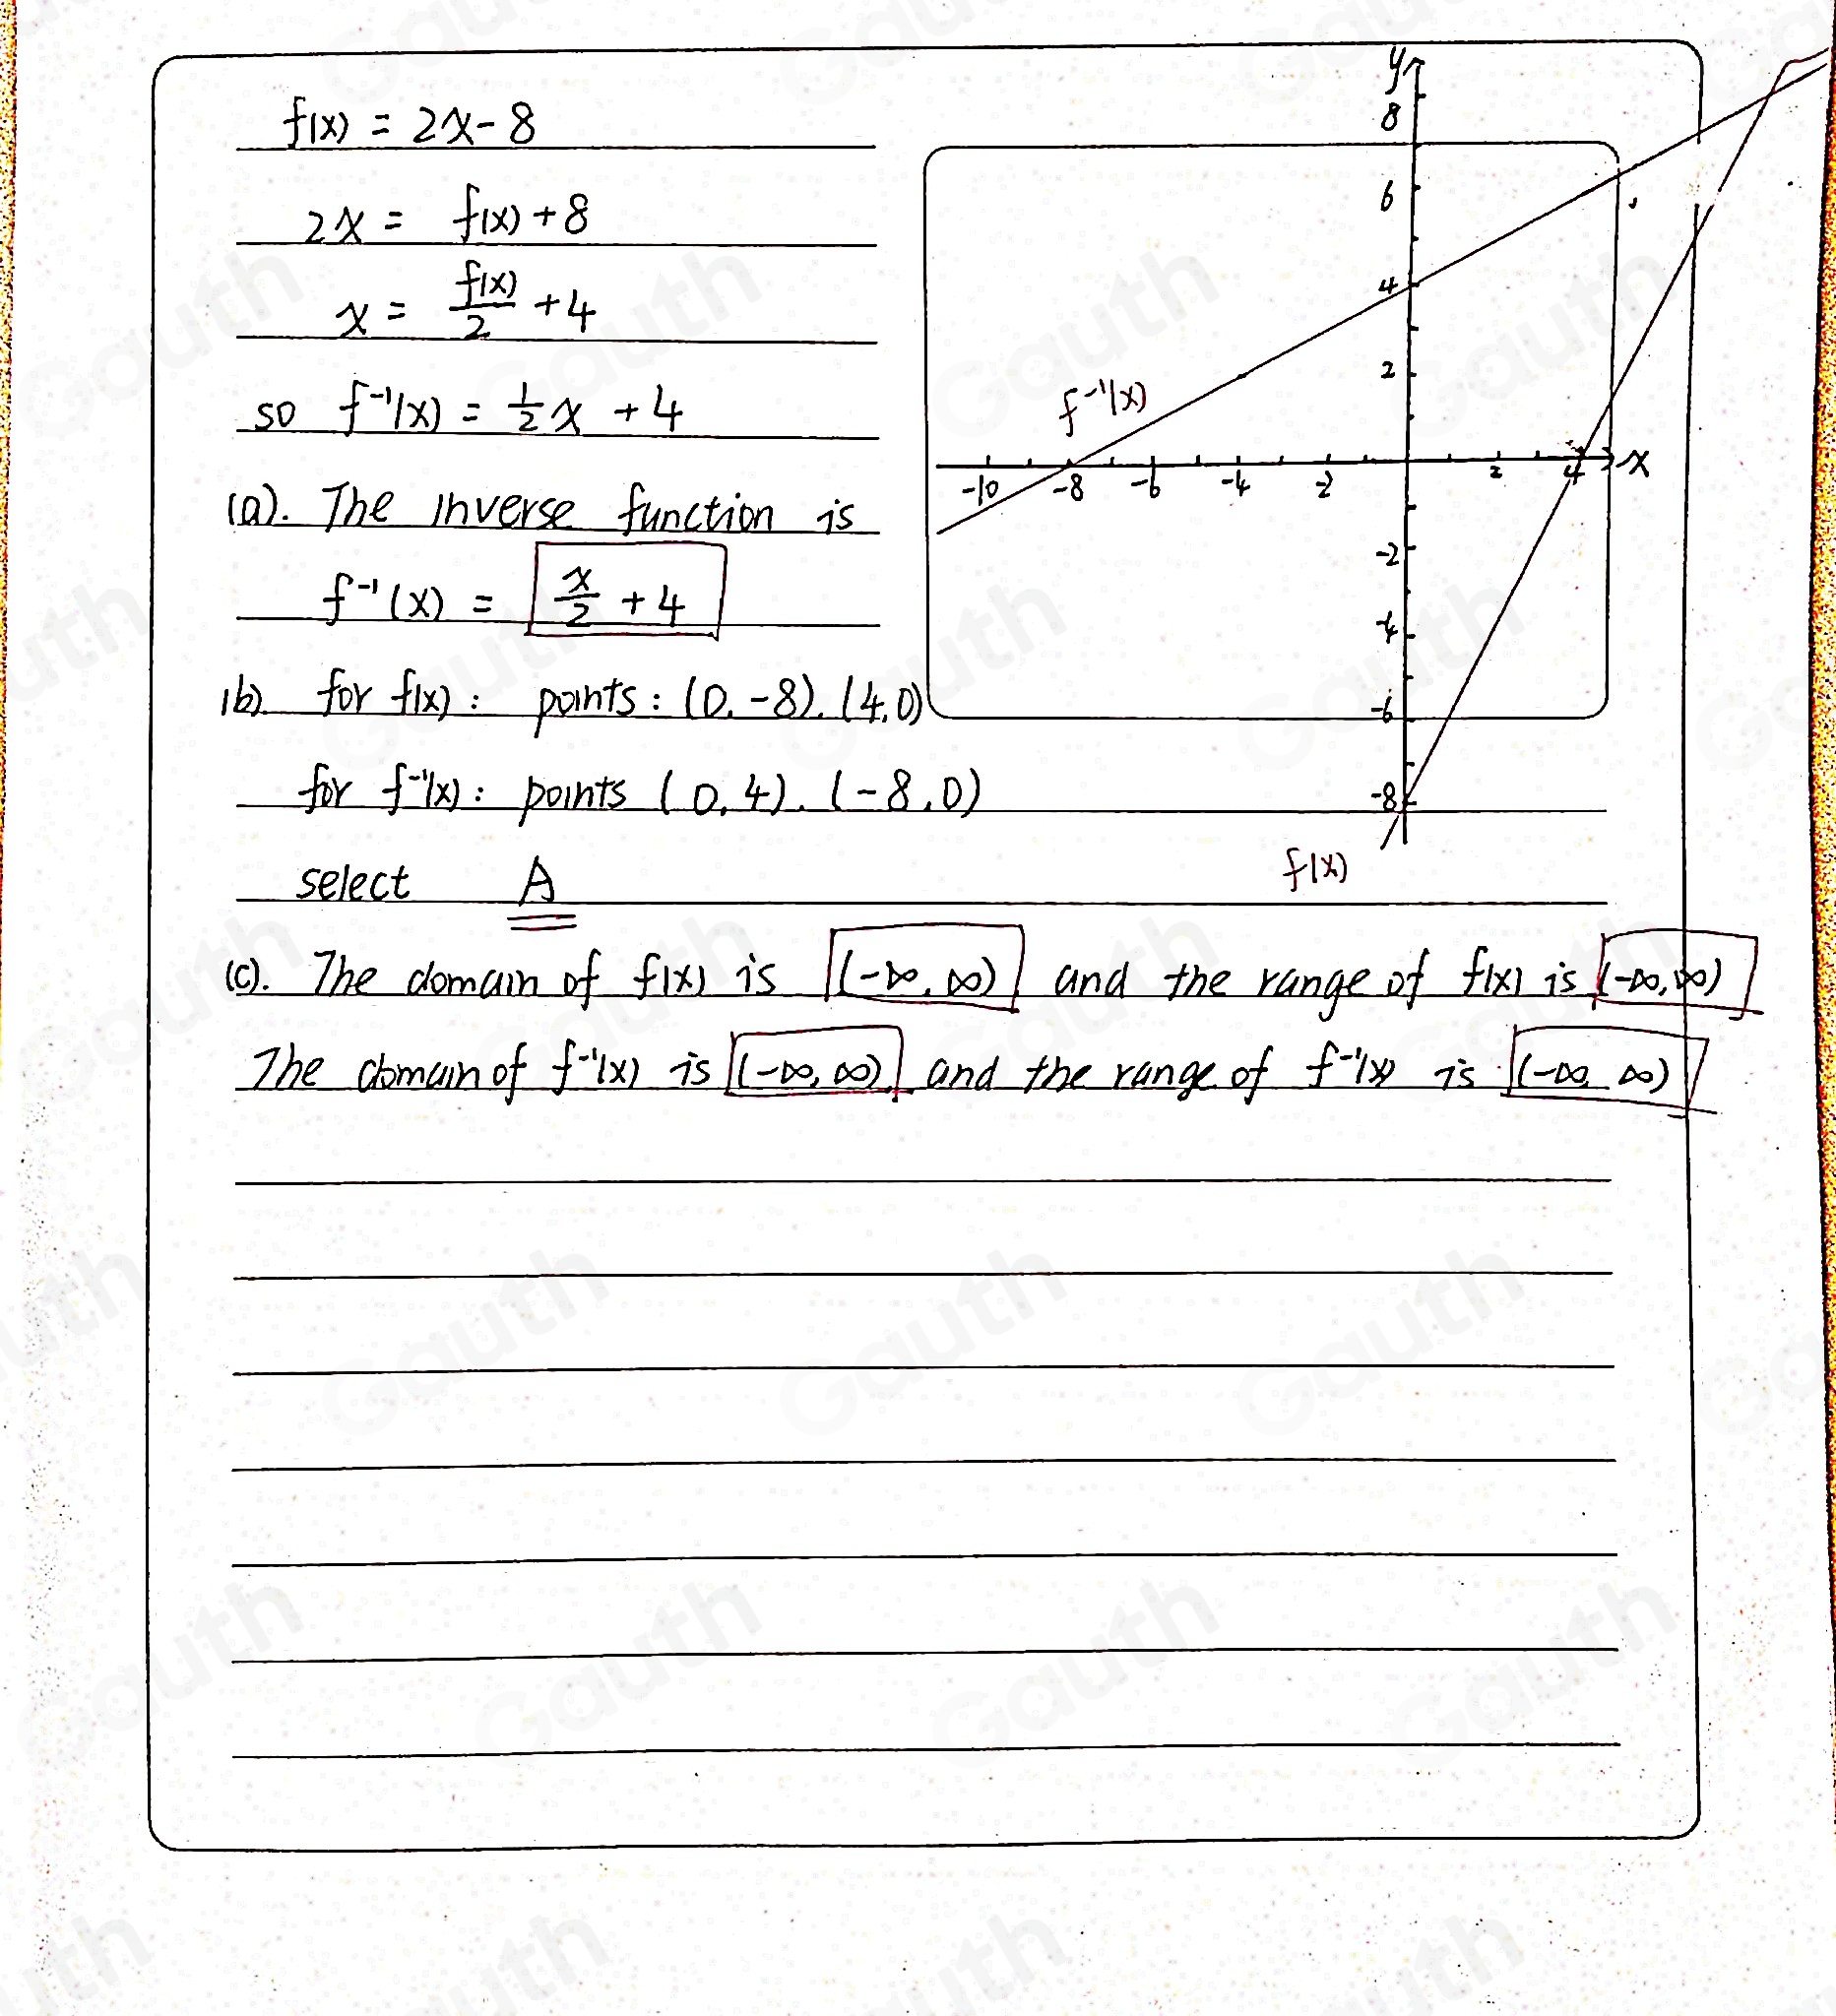 f(x) = 2x - 8
2x = f(x) + 8
x = f(x)/2 + 4
so f⁻¹(x) = 1/2 x + 4
(a). The inverse function is
f⁻¹(x) = x/2 + 4
(b). for f(x): points: (0, -8). (4, 0)
for f⁻¹(x): points (0, 4). (-8, 0)
select A
(c). The domain of f(x) is (-∞, ∞) and the range of f(x) is (-∞, ∞)
The domain of f⁻¹(x) is (-∞, ∞) and the range of f⁻¹(x) is (-∞, ∞)
y
8
6
4
2
f⁻¹(x)
-10 -8 -6 -4 -2 2 4 x
-2
-4
-6
-8
f(x)
Gauth